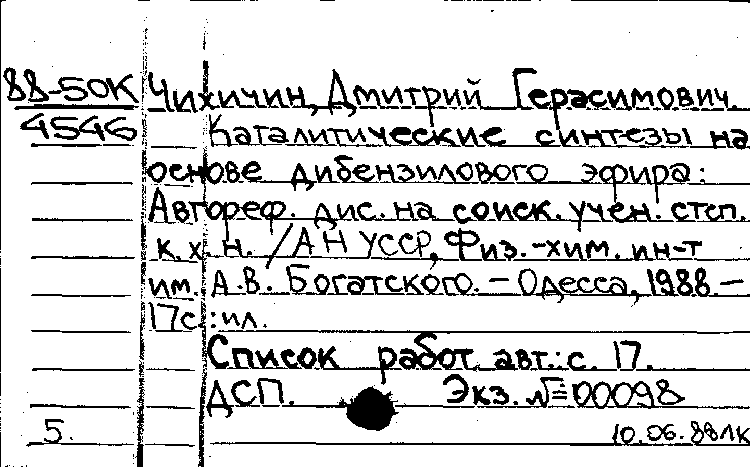 88-50К Чихичин, Дмитрий Герасимович.
4546 Каталитические синтезы на
основе дибензилового эфира:
Автореф. дис. на соиск. учен. степ.
к.х.н. /АН УССР, Физ.-хим. ин-т
им. А.В. Богатского. – Одесса, 1988. –
17с.: ил.
Список работ авт.: с. 17.
ДСП. Экз. №00098
5. 10.06.88ЛК